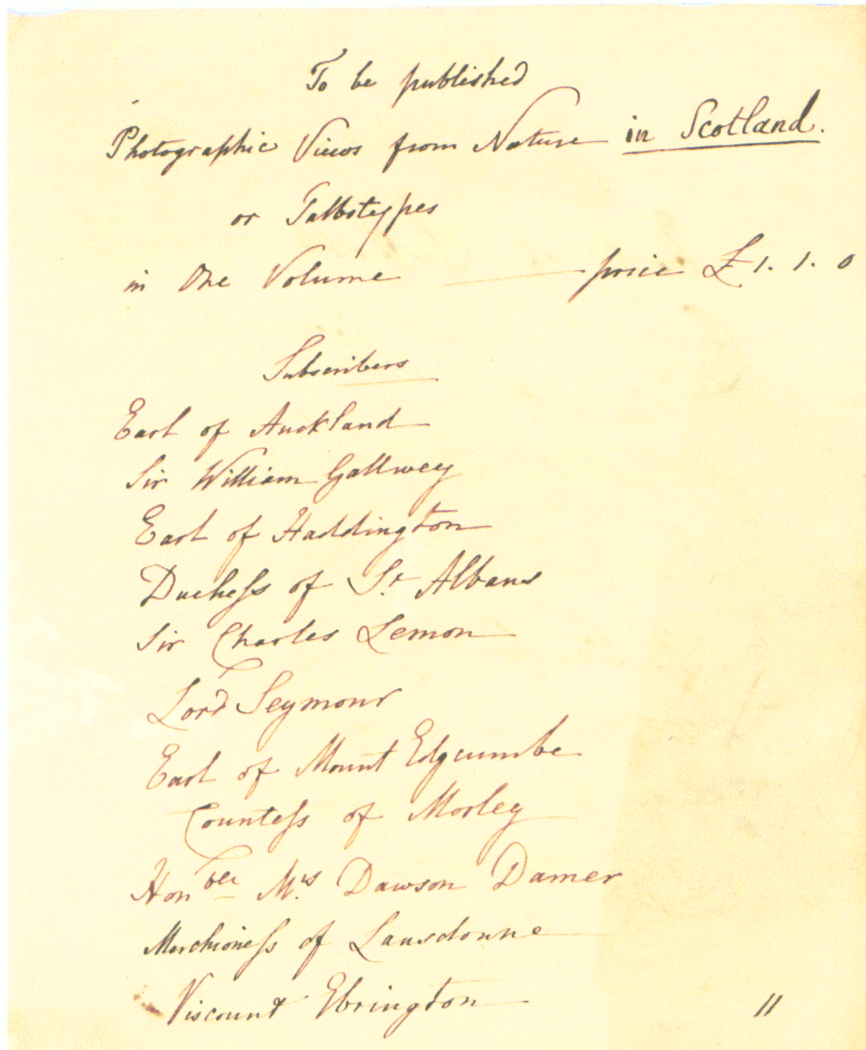 To be published
Photographic Views from Nature in Scotland.
or Talbotypes
in One Volume — price £1. 1. 0
Subscribers
Earl of Auckland
Sir William Gallwey
Earl of Haddington
Duchess of St Albans
Sir Charles Lemon
Lord Seymour
Earl of Mount Edgcumbe
Countess of Morley
Honble Mrs Dawson Damer
Marchioness of Lansdowne
Viscount Ebrington
11